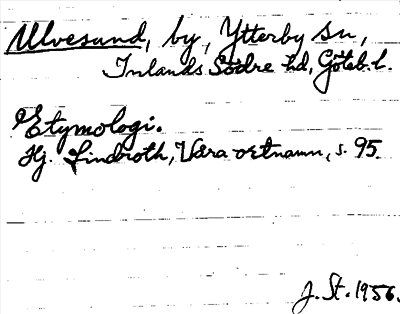 Ulvesund, by, Ytterby sn,
Inlands Södre hd, Göteb. l.
Etymologi.
Hj. Lindroth, Våra ortnamn, s. 95.
J. St. 1956.